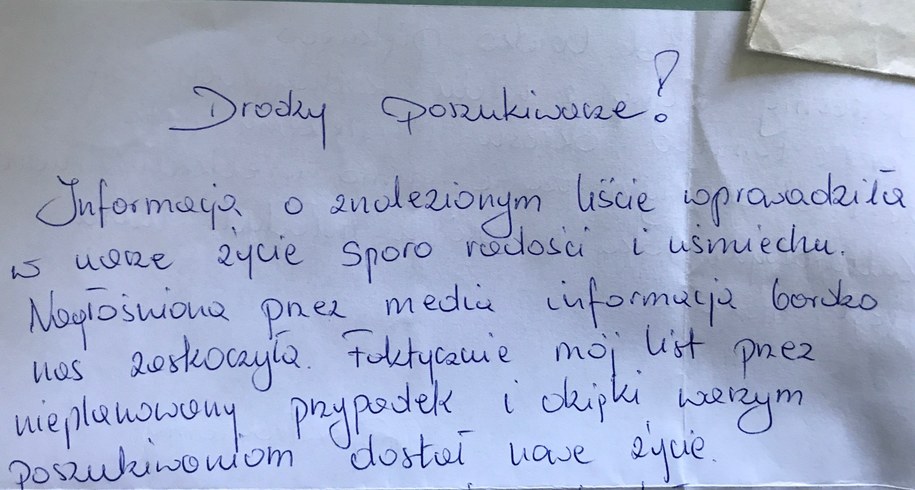 Drodzy poszukiwacze!
Informacja o znalezionym liście wprowadziła
w nasze życie sporo radości i uśmiechu.
Nagłośniona przez media informacja bardzo
nas zaskoczyła. Faktycznie mój list przez
nieplanowany przypadek i dzięki waszym
poszukiwaniom dostał nowe życie.